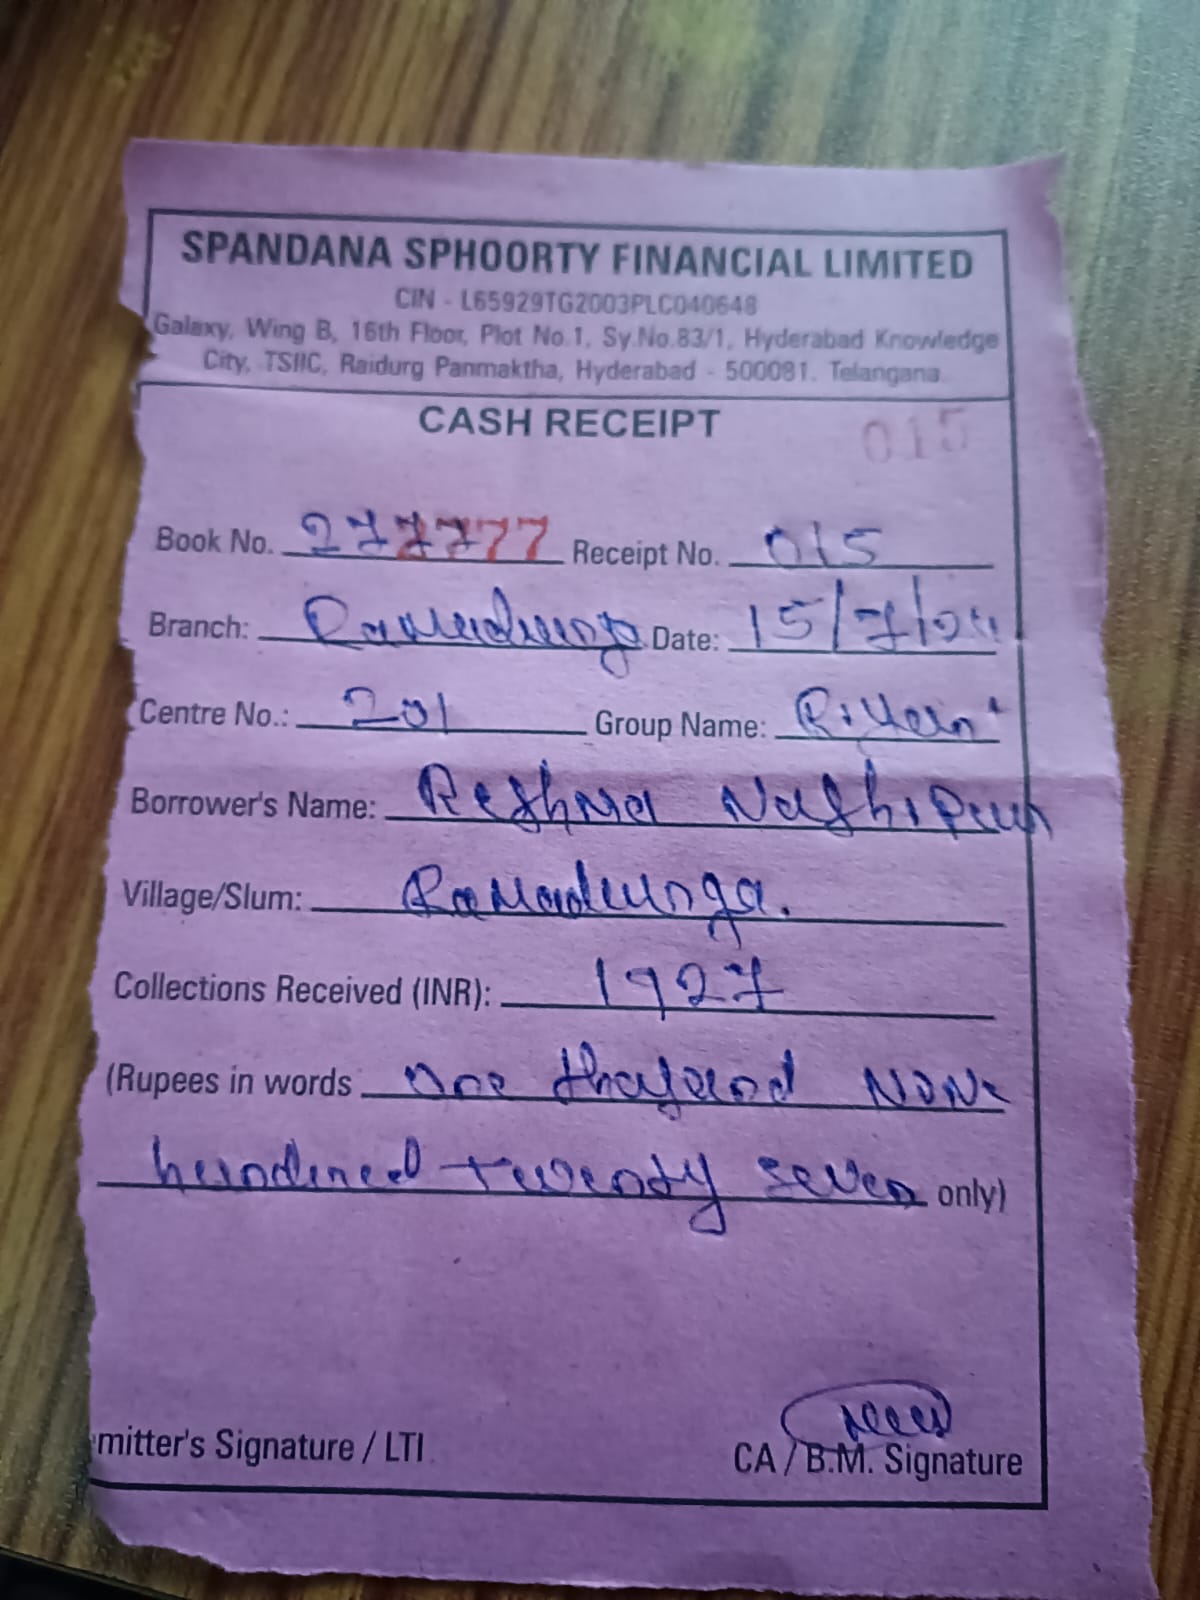 SPANDANA SPHOORTY FINANCIAL LIMITED
CIN - L65929TG2003PLC040648
Galaxy, Wing B, 16th Floor, Plot No.1, Sy.No.83/1, Hyderabad Knowledge
City, TSIIC, Raidurg Panmaktha, Hyderabad - 500081. Telangana.
CASH RECEIPT 015
Book No. 277777 Receipt No. 015
Branch: Date: 15/7/24
Centre No.: 201 Group Name:
Borrower's Name: Reshma
Village/Slum: Ramadunga.
Collections Received (INR): 1927
(Rupees in words one thayeand NONe
hundined twendy seven only)
mitter's Signature / LTI CA / B.M. Signature